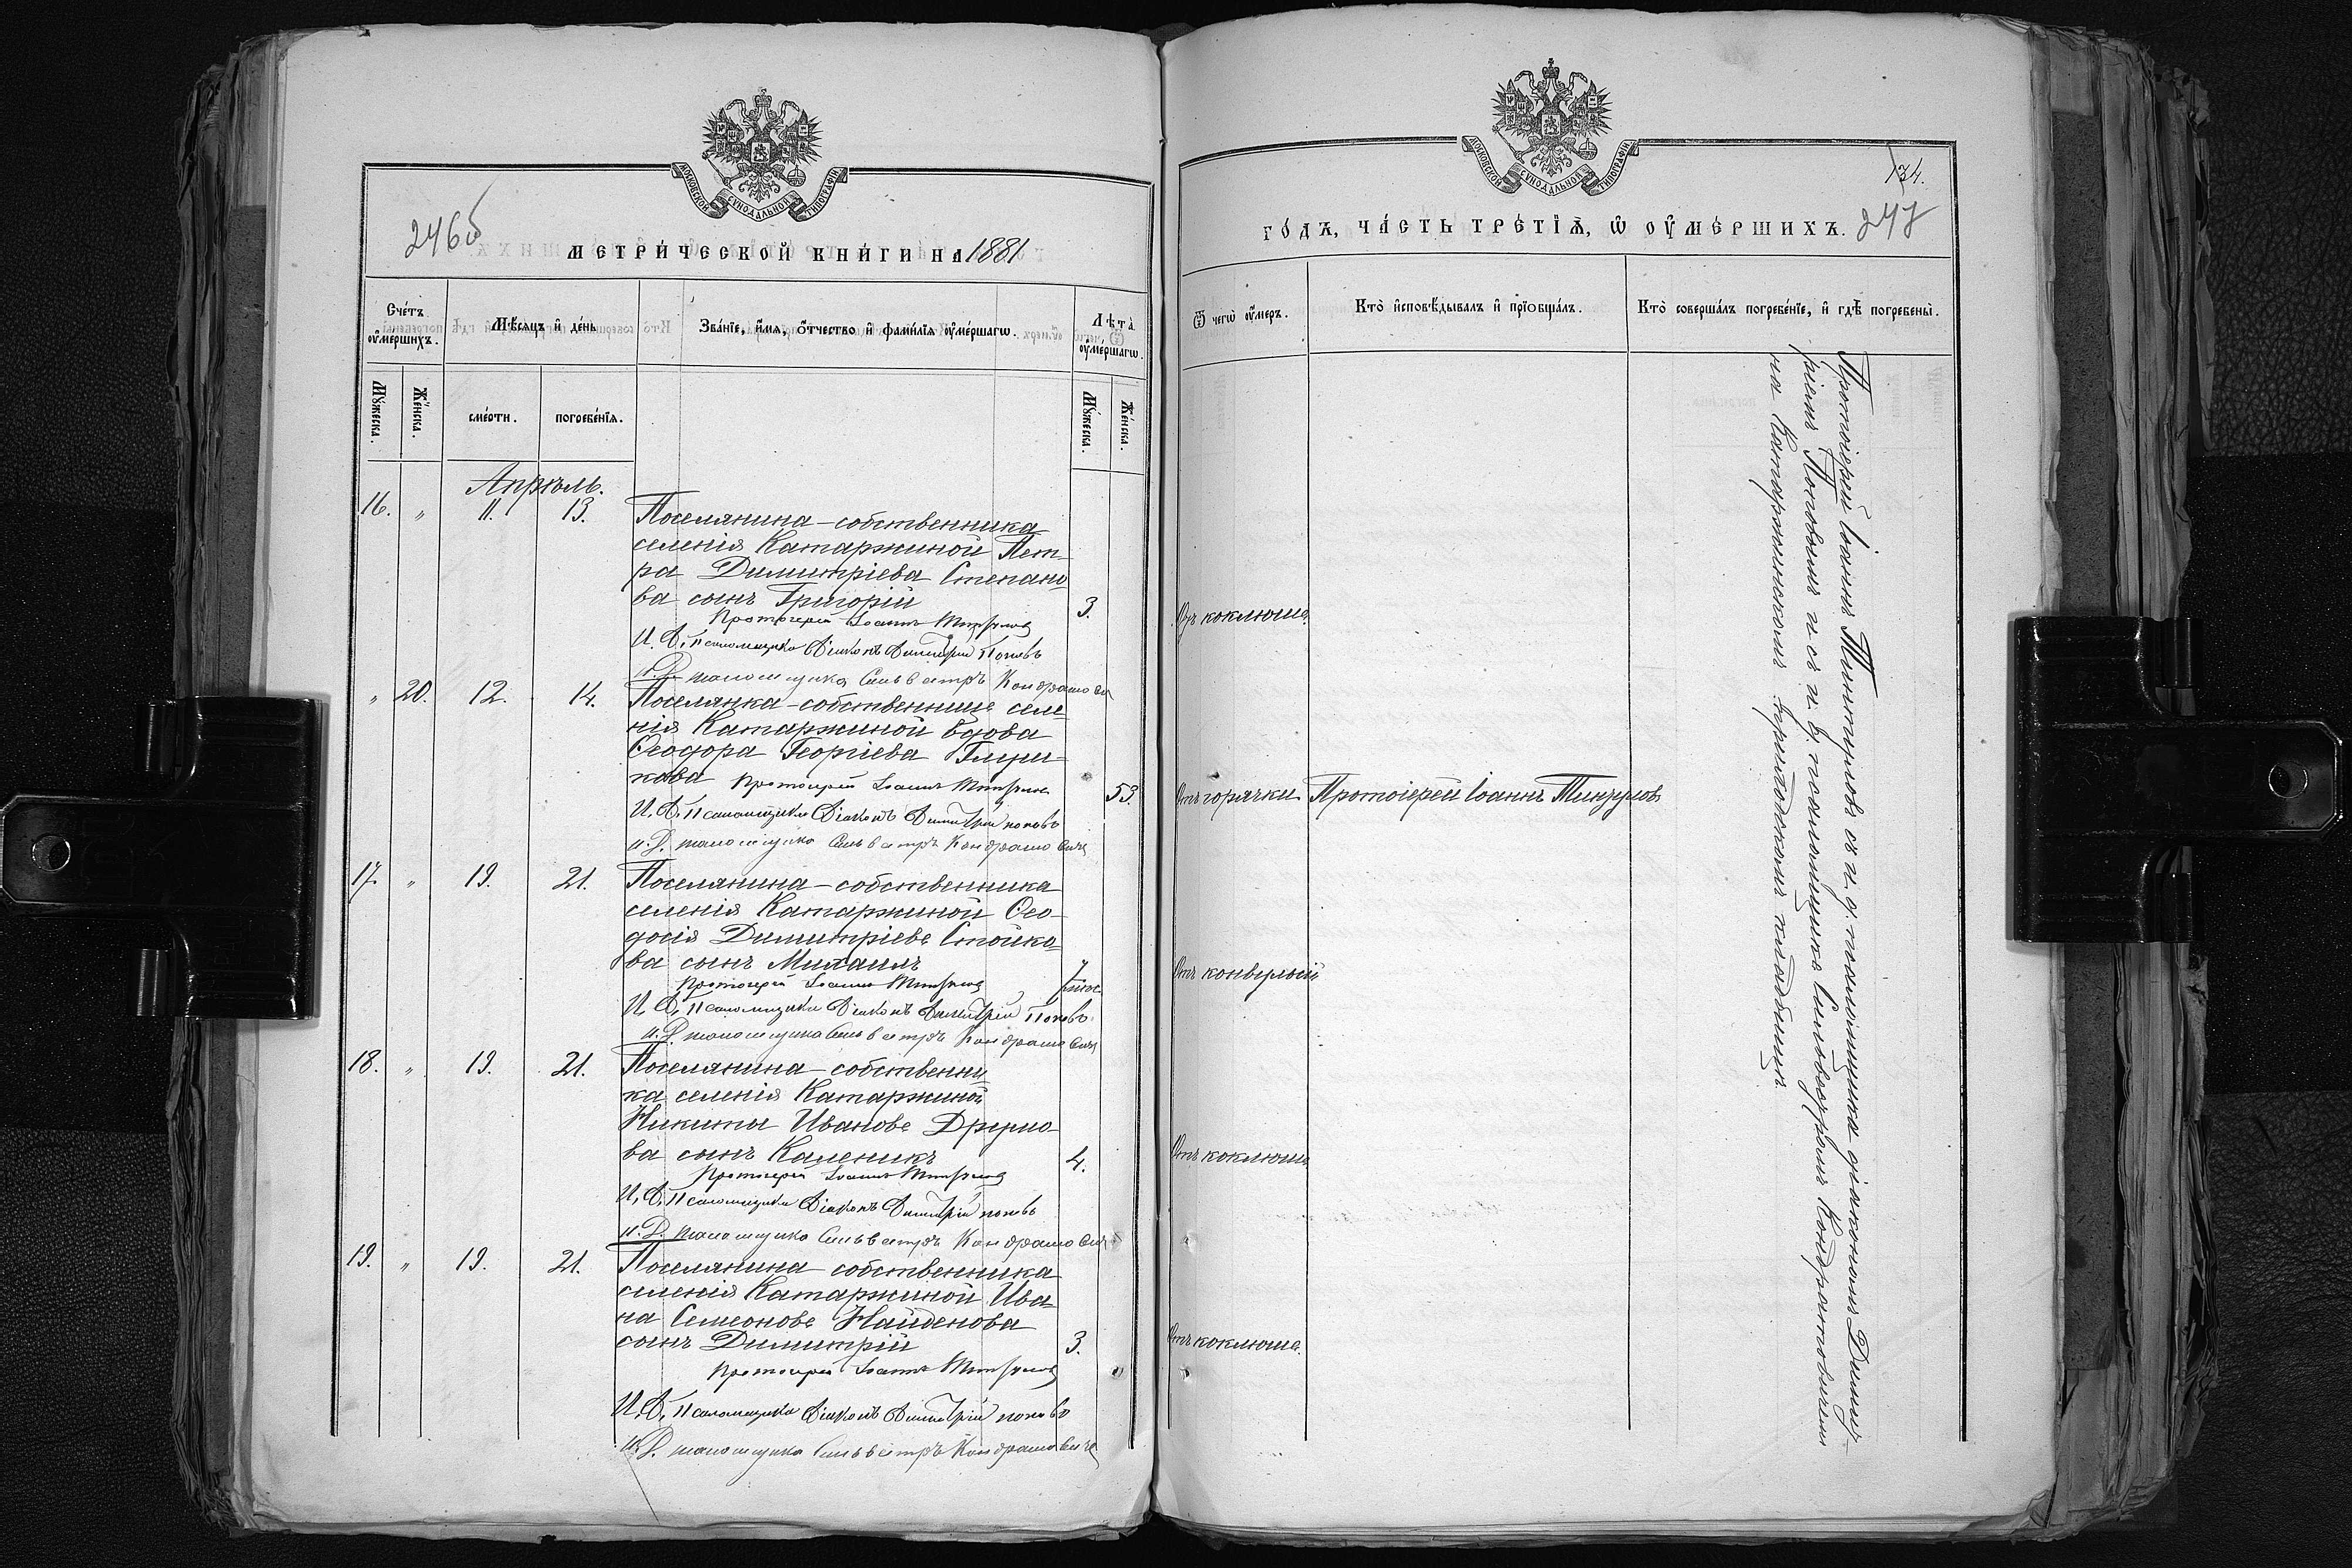 МОСКОВСКОЙ СѴНОДАЛЬНОЙ ТИПОГРАФІИ
246об
МЕТРИ́ЧЕСКОЙ КНИ́ГИ НА 1881
Сче́тъ оу҆ме́ршихъ.
Мѣ́сяцъ и҆ де́нь
Зва́нїе, и҆́мѧ, ѻ҆́тчество и҆ фами́лїѧ оу҆ме́ршагѡ.
Лѣ́та оу҆ме́ршагѡ.
Мꙋ́жеска.
Же́нска.
сме́рти.
погребе́нїѧ.
Мꙋ́жеска.
Же́нска.
Апрѣль.
16. „ 11. 13.
Поселянина-собственника
селенія Катаржиной Пет-
ра Димитріева Степано-
ва сынъ Григорій
3.
Протоіерей Іоаннъ
И. Д. Псаломщика Діаконъ Димитрій Поповъ
и. Д. псаломщика Сильвестръ Кондрашовичъ
„ 20. 12. 14.
Поселянка-собственница селе-
нія Катаржиной вдова
Ѳеодора Георгіева
кова
Протоіерей Іоаннъ
53.
И. Д. Псаломщика Діаконъ Димитрій Поповъ
и. Д. псаломщика Сильвестръ
17. „ 19. 21.
Поселянина-собственника
селенія Катаржиной Ѳео-
досія Димитріева Стойко-
ва сынъ Михаилъ
7
Протоіерей Іоаннъ
И. Д. Псаломщика Діаконъ Димитрій Поповъ
и. Д. псаломщика Сильвестръ
18. „ 19. 21.
Поселянина-собственни-
ка селенія Катаржиной
Никиты Иванова
ва сынъ Каленикъ
4.
Протоіерей Іоаннъ
И. Д. Псаломщика Діаконъ Димитрій Поповъ
и. Д. псаломщика Сильвестръ
19. „ 19. 21.
Поселянина-собственника
селенія Катаржиной Ива-
на Семенова Найденова
сынъ Димитрій
3.
Протоіерей Іоаннъ
И. Д. Псаломщика Діаконъ Димитрій Поповъ
и. Д. псаломщика Сильвестръ
МОСКОВСКОЙ СѴНОДАЛЬНОЙ ТИПОГРАФІИ
134.
247
ГО́ДЪ, ЧА́СТЬ ТРЕ́ТЇѦ, Ѡ҆ ОУ҆МЕ́РШИХЪ.
Ѿ чегѡ̀ оу҆́меръ.
Кто̀ и҆сповѣ́дывалъ и҆ прїѡбща́лъ.
Кто̀ соверша́лъ погребе́нїе, и҆ гдѣ̀ погребены̀.
Отъ коклюша.
Отъ горячки
Протоіерей Іоаннъ
Отъ конвульсій
Отъ коклюша
Отъ коклюша.
Протоіерей Іоаннъ съ и. д. псаломщика діакономъ Димит-
ріемъ Поповымъ и съ и. д. псаломщика Сильвестромъ
на Катаржинскомъ приходскомъ кладбищѣ.